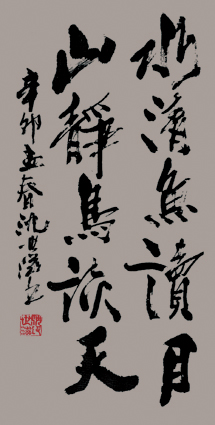 水清魚讀月
山靜鳥談天
辛卯孟春沈